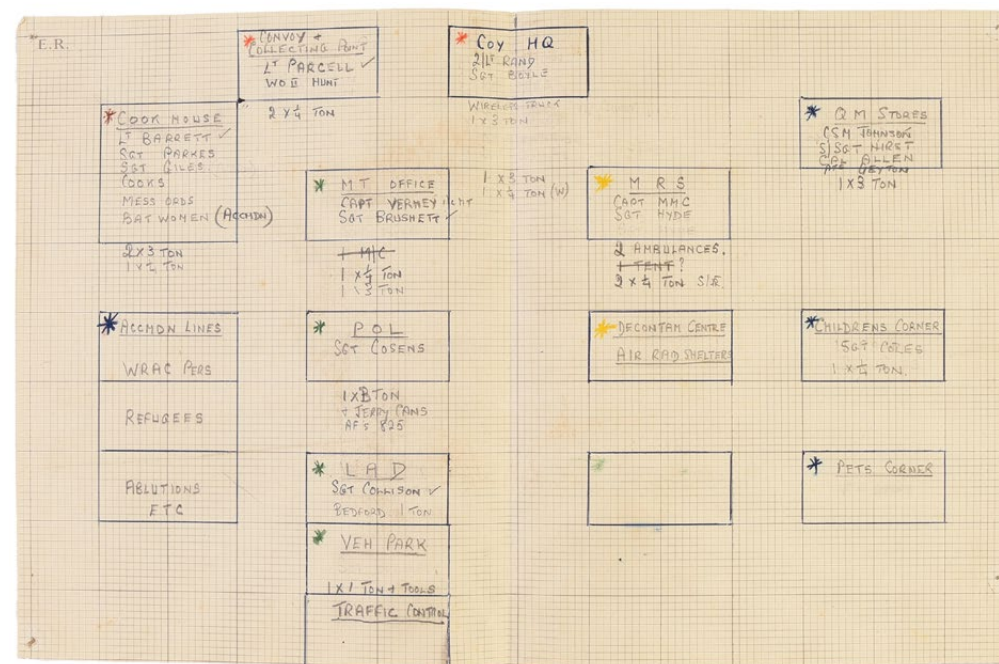 E.R.
CONVOY +
COLLECTING POINT
LT PARCELL ✓
WO II HUNT
2 x ¼ TON
COY HQ
2/LT RAND
SGT BOYLE
WIRELESS TRUCK
1 x 3 TON
1 x 3 TON
1 x ¼ TON (W)
COOK HOUSE
LT BARRETT ✓
SGT PARKES
SGT GILES
COOKS
MESS ORDS
BAT WOMEN (ACCMDN)
2 x 3 TON
1 x ¼ TON
MT OFFICE
CAPT VERNEY
SGT BRUSHETT ✓
1 M/C
1 x ¼ TON
1 x 3 TON
MRS
CAPT MMC
SGT HYDE
2 AMBULANCES.
1 TENT ?
2 x ¼ TON
QM STORES
CSM JOHNSON
S/SGT HIRST
CPL ALLEN
PTE
1 x 3 TON
ACCMDN LINES
WRAC PERS
REFUGEES
ABLUTIONS
ETC
POL
SGT COSENS
TON
+ JERRY CANS
AF's 825
DECONTAM CENTRE
AIR RAD SHELTERS
CHILDRENS CORNER
SGT COLES
1 x ¼ TON.
LAD
SGT COLLISON ✓
BEDFORD 1 TON
VEH PARK
1 x 1 TON + TOOLS
TRAFFIC CONTROL
PETS CORNER